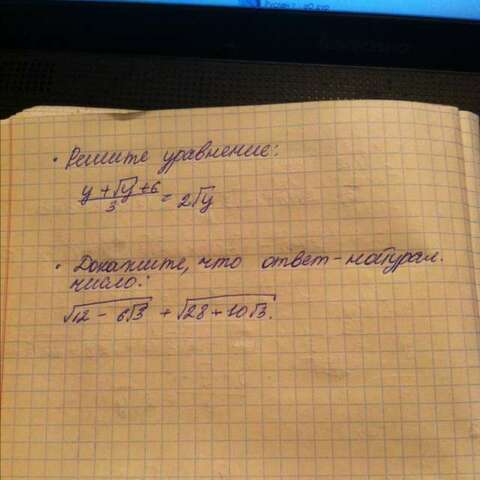 • Решите уравнение:
y + √y + 6 / 3 = 2√y
• Докажите, что ответ - натурал.
число:
√12 - 6√3 + √28 + 10√3.